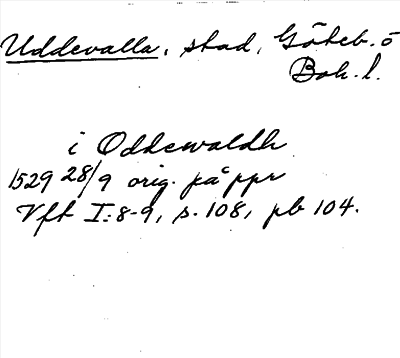 Uddevalla, stad, Göteb. o
Boh. l.
i Oddewaldh
1529 28/9 orig. på ppr
Vft I:8-9, s. 108, pb 104.